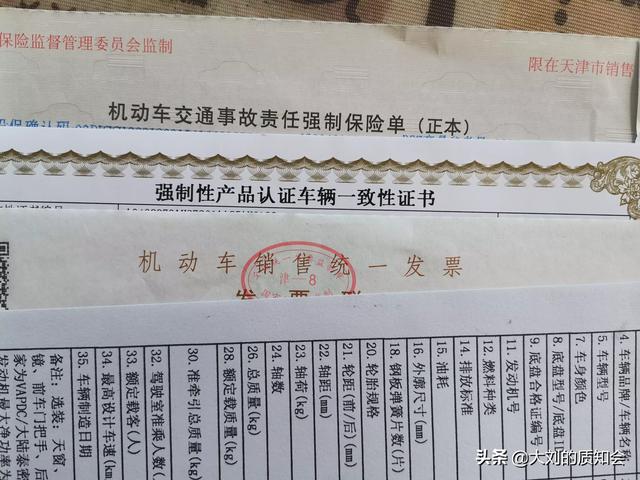 保险监督管理委员会监制
限在天津市销售
机动车交通事故责任强制保险单 (正本)
强制性产品认证车辆一致性证书
机动车销售统一发票
津 8
发票联
4.车辆品牌/车辆名称
5.车辆型号
7.车身颜色
8.底盘型号/底盘ID
9.底盘合格证编号
11.发动机号
12.燃料种类
14.排放标准
15.油耗
16.外廓尺寸(mm)
18.钢板弹簧片数(片)
20.轮胎规格
21.轮距(前/后)(mm)
22.轴距(mm)
23.轴荷(kg)
24.轴数
26.总质量(kg)
28.额定载质量(kg)
30.准牵引总质量(kg)
32.驾驶室准乘人数(
33.额定载客(人)
34.最高设计车速(km
35.车辆制造日期
备注:选装:天窗、
镜、前车门把手、后
家为VAPDC/大陆泰密
发动机最大净功率为
头条 @大刘的质知会